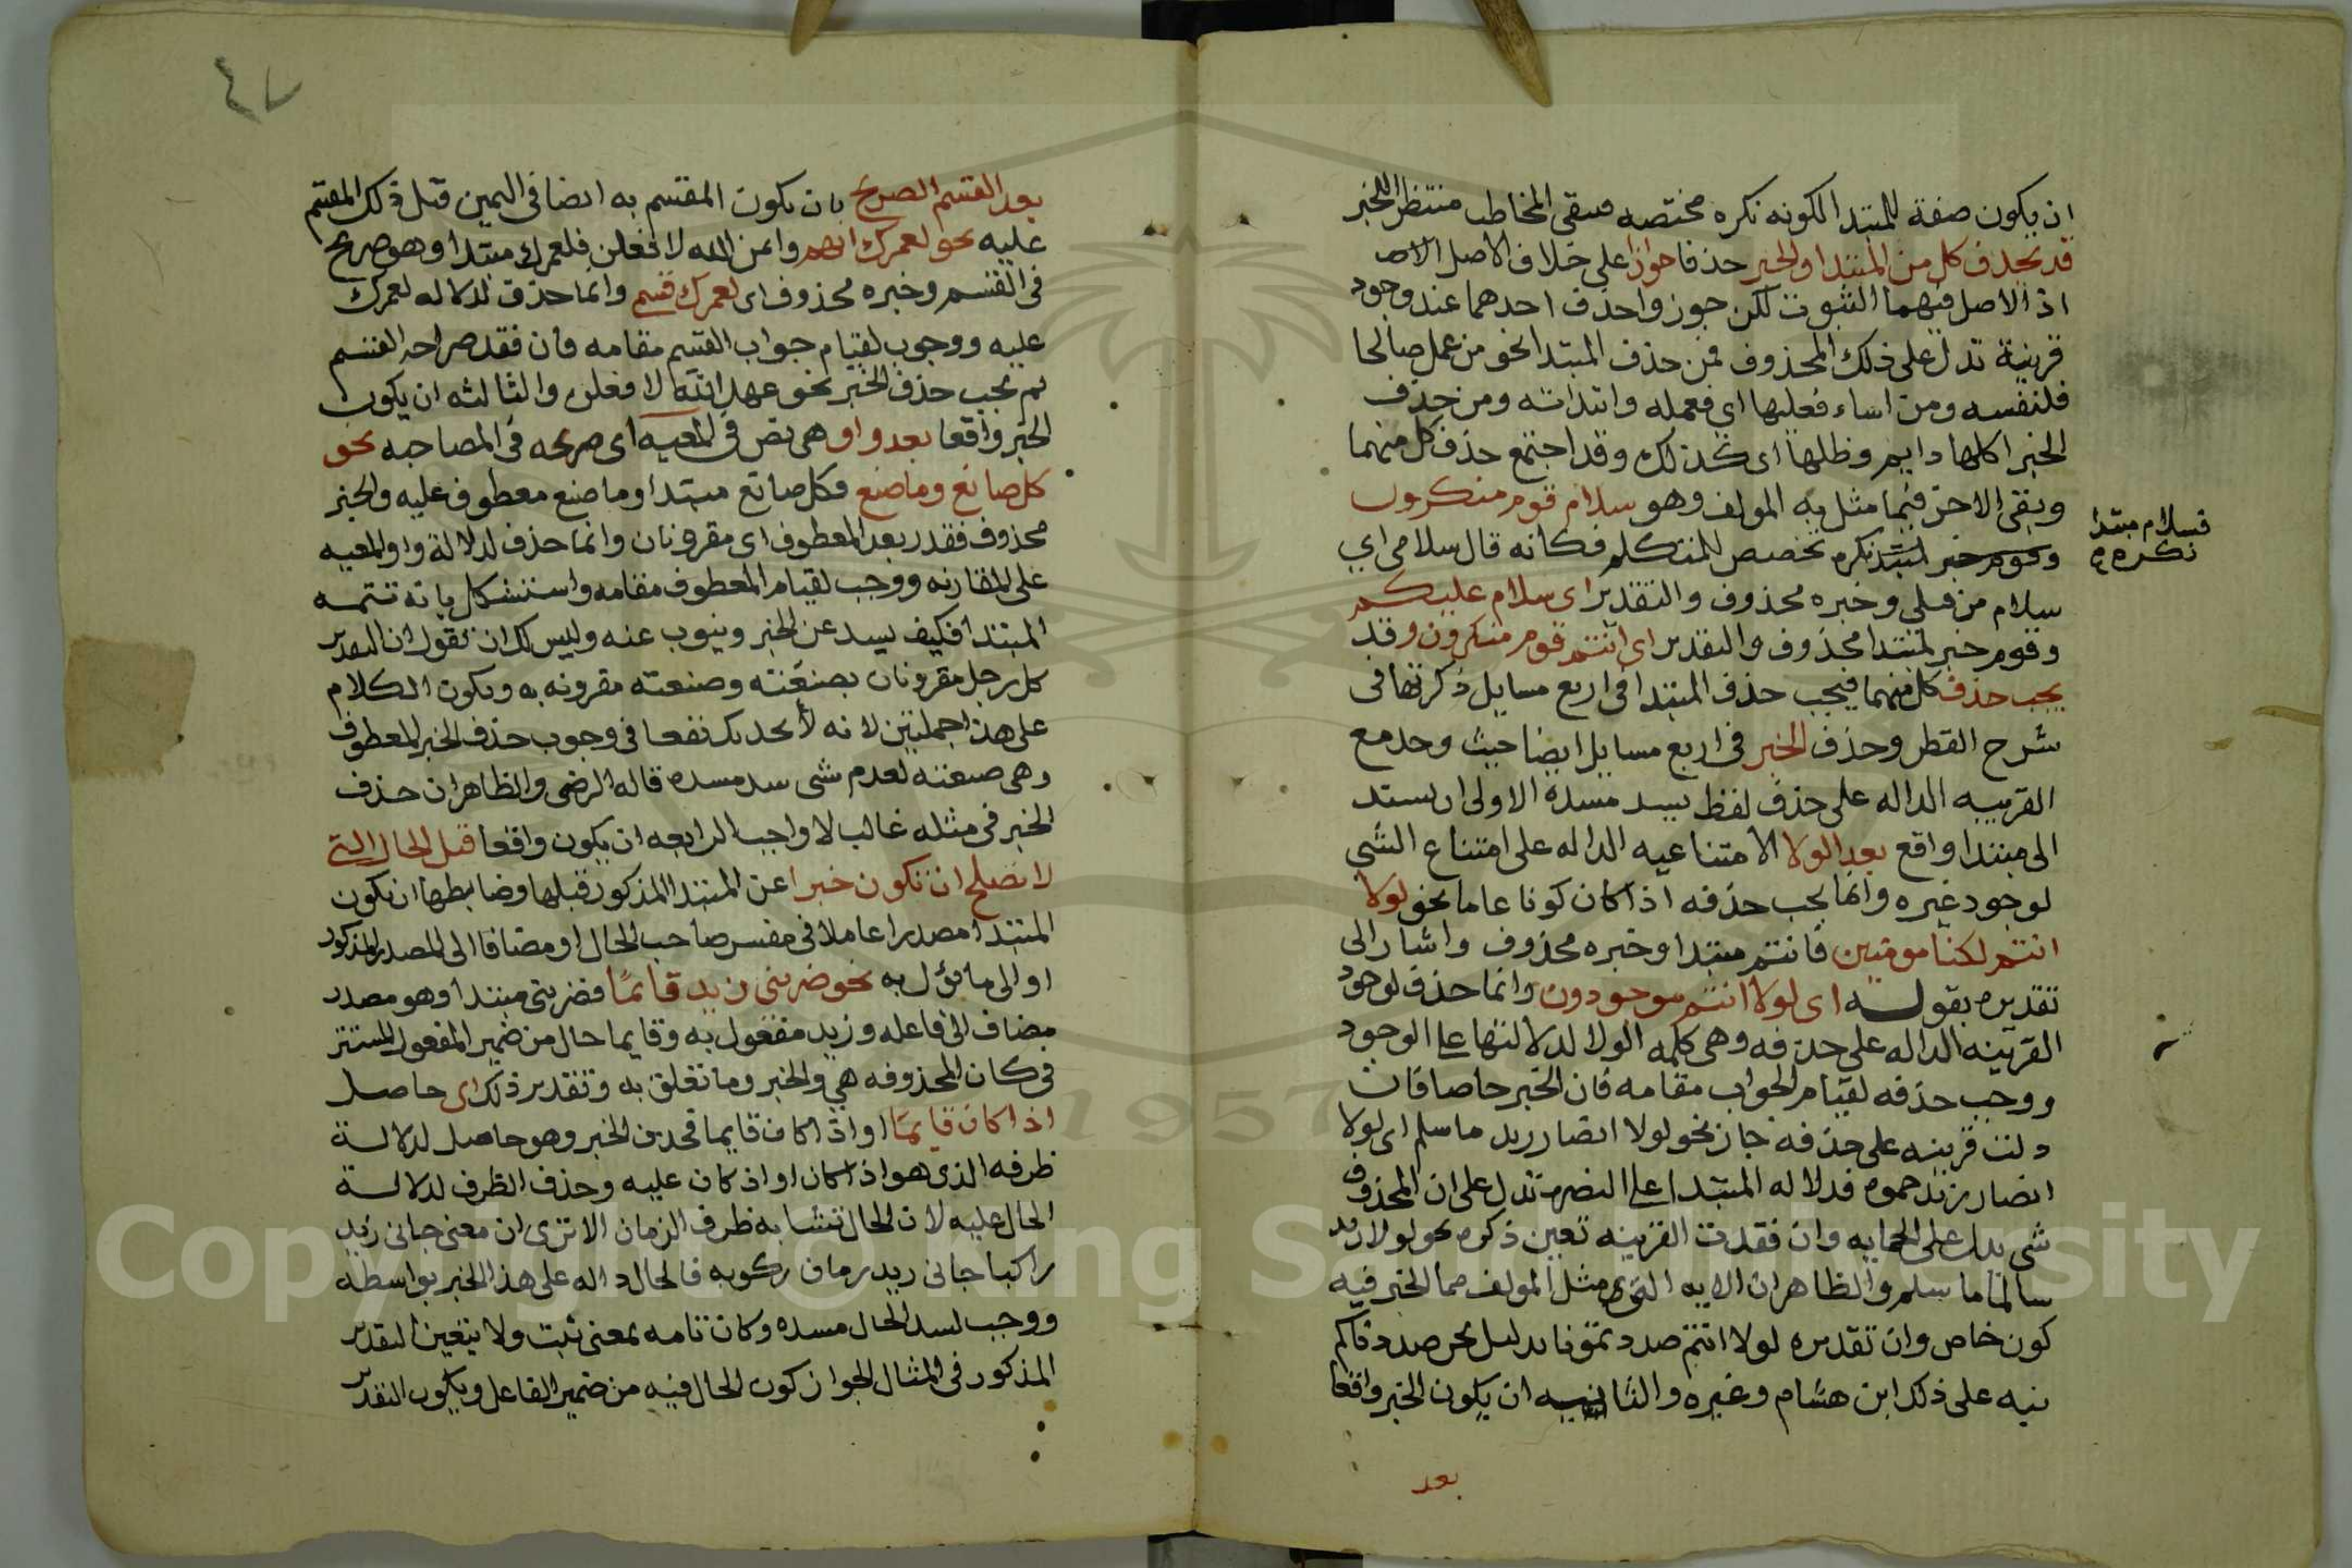 ان يكون صفة للمبتدا لكونه نكره مختصه فيبقى المخاطب منتظر للخبر
قد يحذف كل من المبتدا والخبر حذفا جوازا على خلاف الاصل
اذ الاصل فيهما الثبوت لكن جوزوا حذف احدهما عند وجود
قرينة تدل على ذلك المحذوف فمن حذف المبتدا نحو من عمل صالحا
فلنفسه ومن اساء فعليها اى فعمله واساته ومن حذف
الخبر اكلها دايم وظلها اى كذلك وقد اجتمع حذف كل منهما
وبقى الاخر فيما مثل به المولف وهو سلام قوم منكرون
فسلام مبتدا
نكره
تخصص للمتكلم فكانه قال سلامى اي
سلام من قبلى وخبره محذوف والتقدير اى سلام عليكم
وقوم خبر لمبتدا محذوف والتقدير اى انتم قوم منكرون وقد
يجب حذف كل منهما فيجب حذف المبتدا فى اربع مسايل ذكرتها فى
شرح القطر وحذف الخبر فى اربع مسايل ايضا حيث وجد مع
القرينه الداله على حذف لفظ يسد مسده الاولى ان يسند
الى مبتدا واقع بعد لولا الامتناعيه الداله على امتناع الشي
لوجود غيره وانما يجب حذفه اذا كان كونا عاما نحو لولا
انتم لكنا مومنين فانتم مبتدا وخبره محذوف واشار الى
تقديره بقوله اى لولا انتم موجودون وانما حذف لوجود
القرينه الداله على حذفه وهى كلمه لولا لدلالتها على الوجود
ووجب حذفه لقيام الجواب مقامه فان كان الخبر خاصا فان
دلت قرينه على حذفه جاز نحو لولا انصار زيد ما سلم اى لولا
انصار زيد حموه فدلاله المبتدا على النصره تدل على ان المحذوف
شى يدل على الحمايه وان فقدت القرينه تعين ذكره نحو لولا زيد
سالمنا ما سلم والظاهر ان الايه التى مثل المولف مما الخبر فيه
كون خاص وان تقديره لولا انتم صددتمونا بدليل نحن صددناكم
نبه على ذلك ابن هشام وغيره والثانيه ان يكون الخبر واقعا
بعد
٤٧
بعد القسم الصريح بان يكون المقسم به ايضا فى اليمين قبل ذلك المقسم
عليه نحو لعمرك انهم وايمن الله لافعلن فلعمرك مبتدا وهو صريح
فى القسم وخبره محذوف اى لعمرك قسم وانما حذف لدلاله لعمرك
عليه ووجب لقيام جواب القسم مقامه فان فقد صراحه القسم
لم يجب حذف الخبر نحو عهد الله لافعلن والثالثه ان يكون
الخبر واقعا بعد واو هى نص فى المعيه اى صريحه فى المصاحبه نحو
كل صانع وما صنع فكل صانع مبتدا وما صنع معطوف عليه والخبر
محذوف فقدر بعد المعطوف اى مقرونان وانما حذف لدلالة واو المعيه
على المقارنه ووجب لقيام المعطوف مقامه واستشكل بانه تتمه
المبتدا فكيف يسد عن الخبر وينوب عنه وليس لك ان تقول ان التقدير
كل رجل مقرونان بصنعته وصنعته مقرونه به ويكون الكلام
على هذا جملتين لانه لا يحديك نفعا فى وجوب حذف الخبر للمعطوف
وهى صنعته لعدم شى سد مسده قاله الرضى والظاهر ان حذف
الخبر فى مثله غالب لا واجب الرابعه ان يكون واقعا قبل الحال التى
لا تصلح ان تكون خبرا عن المبتدا المذكور قبلها وضابطها ان يكون
المبتدا مصدرا عاملا فى مفسر صاحب الحال او مضافا الى المصدر المذكور
او الى ما يؤل به نحو ضربى زيد قائما فضربى مبتدا وهو مصدر
مضاف الى فاعله وزيد مفعول به وقايما حال من ضمير المفعول المستتر
فى كان المحذوفه هي والخبر وما تعلق به وتقدير ذلك اى حاصل
اذا كان قايما او اذ كان قايما فحذف الخبر وهو حاصل لدلالة
ظرفه الذى هو اذا كان او اذ كان عليه وحذف الظرف لدلالة
الحال عليه لان الحال تشابه ظرف الزمان الا ترى ان معنى جانى زيد
راكبا جانى زيد زمان ركوبه فالحال داله على هذا الخبر بواسطه
ووجب لسد الحال مسده وكان تامه بمعنى ثبت ولا يتعين التقدير
المذكور فى المثال لجواز كون الحال فيه من ضمير الفاعل ويكون التقدير
Copyright © King Saud University
1957